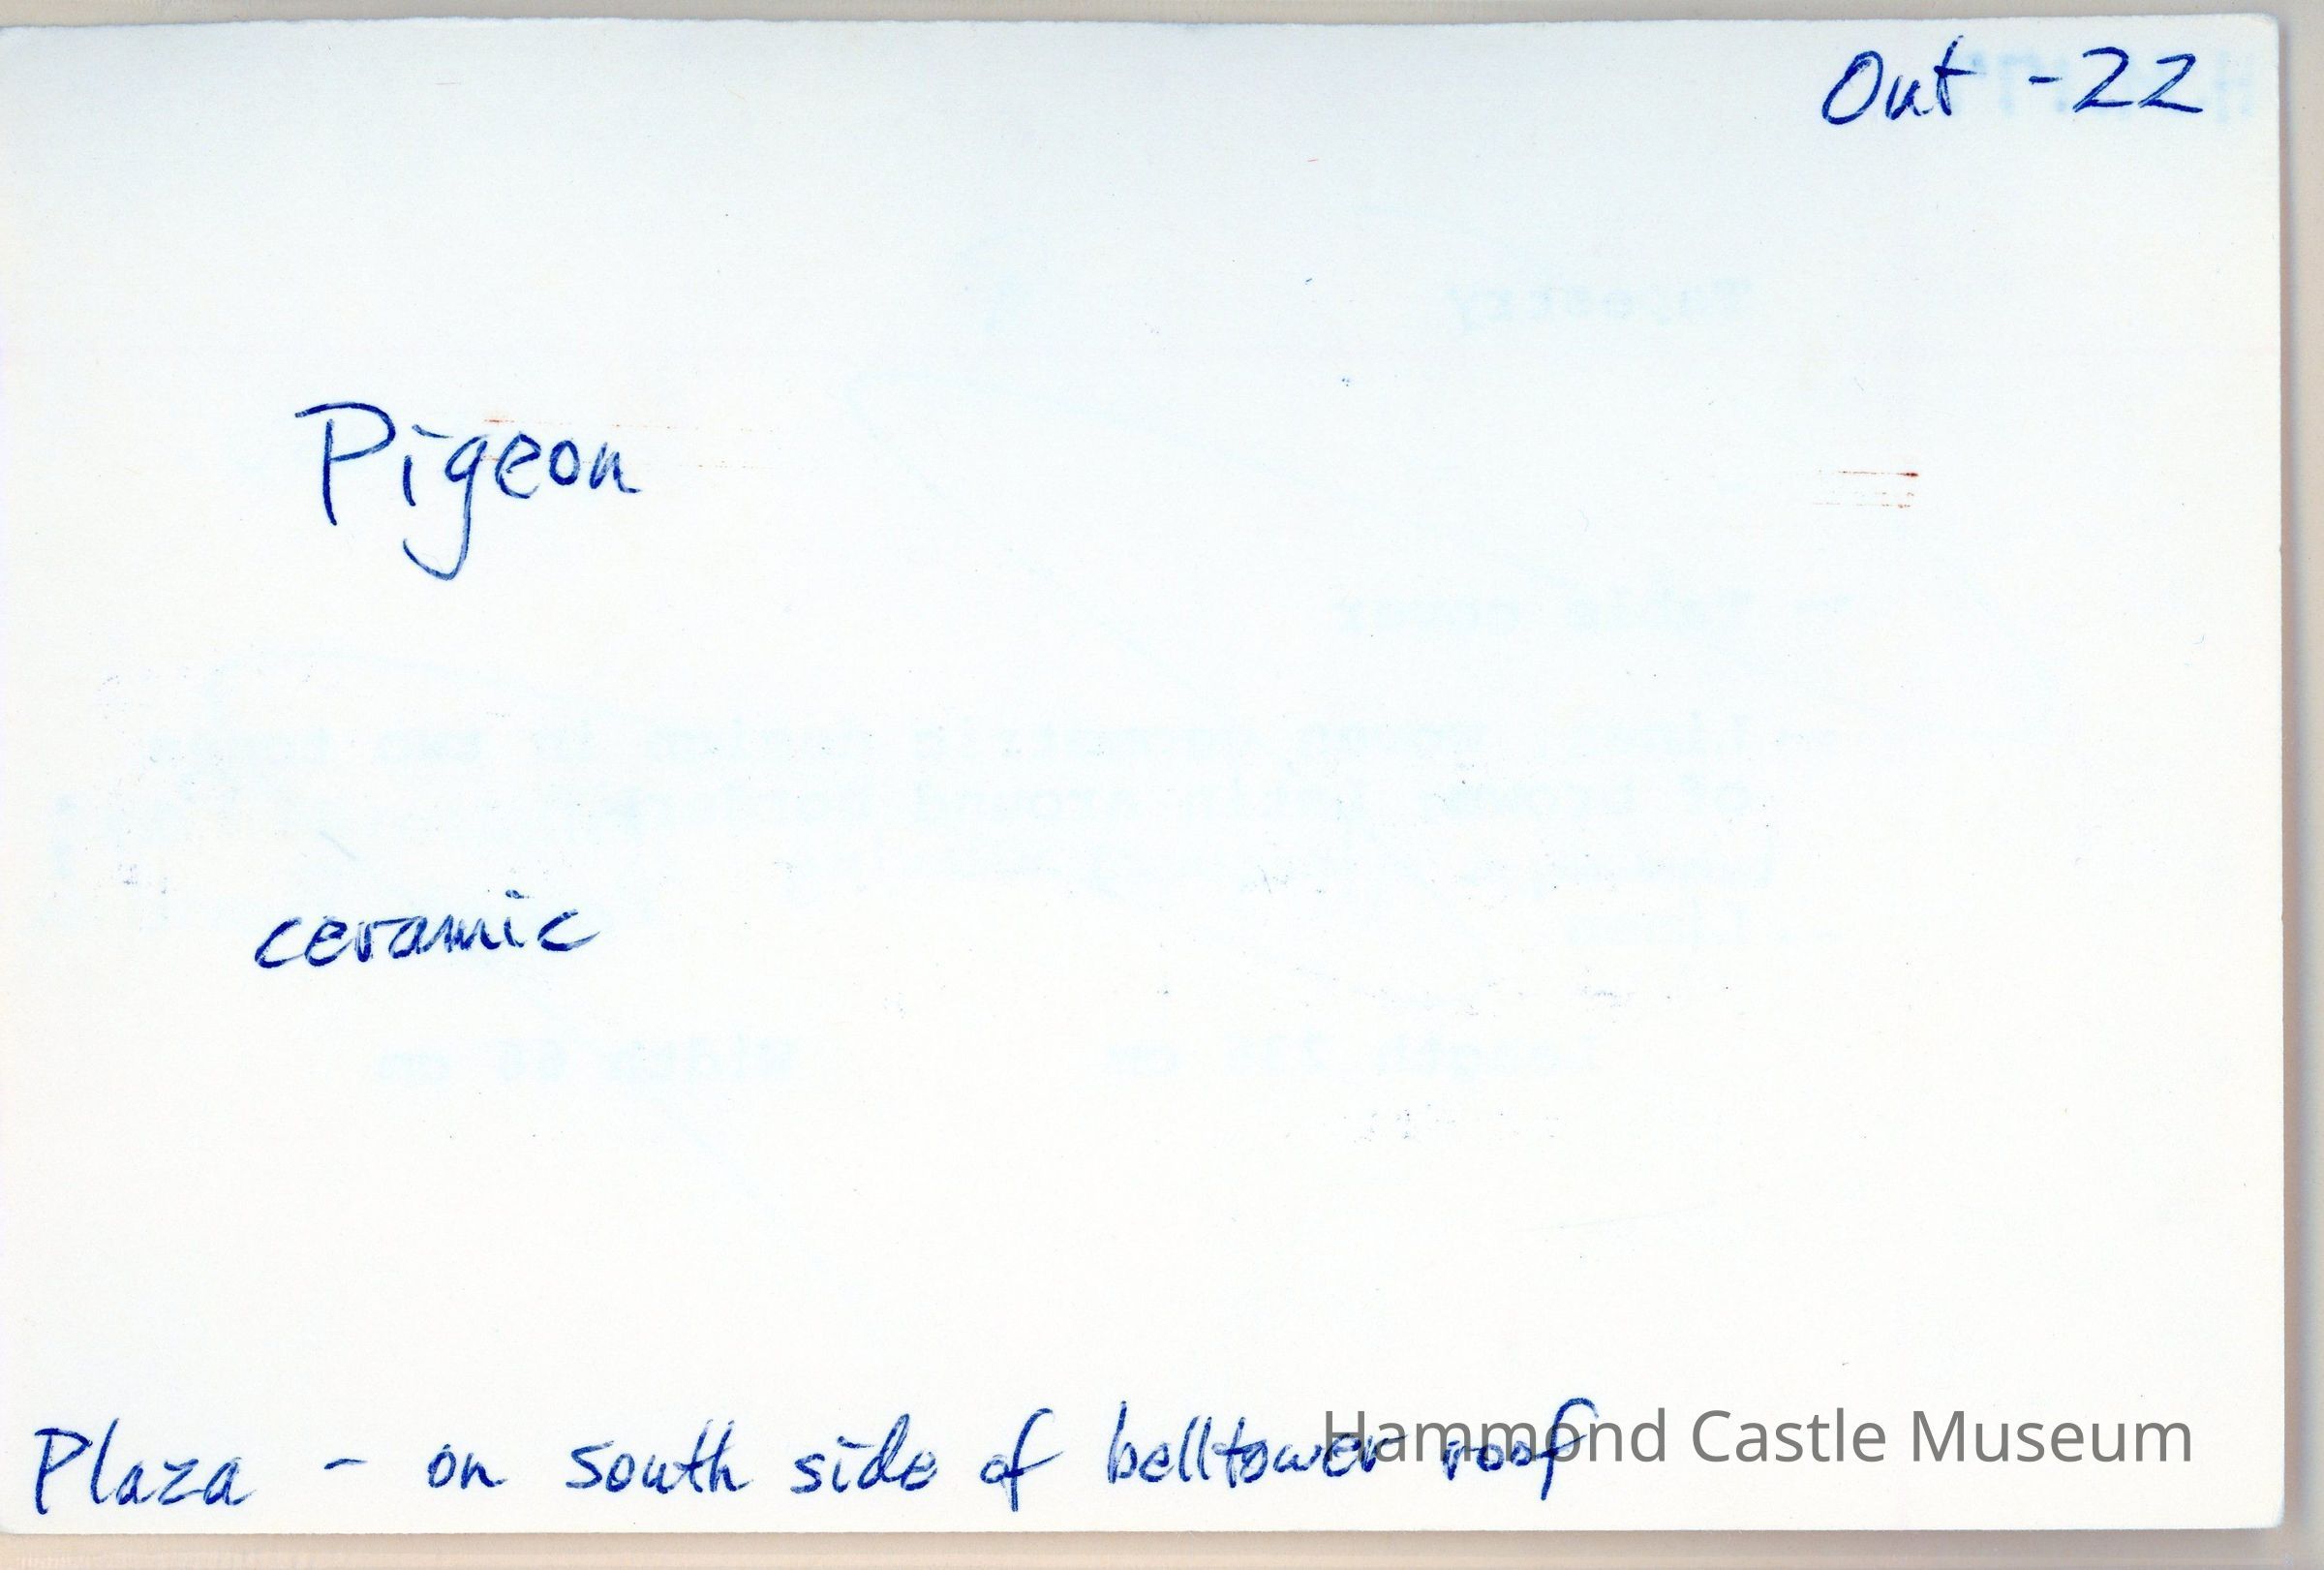 Out - 22
Pigeon
ceramic
Plaza - on south side of belltower roof
Hammond Castle Museum